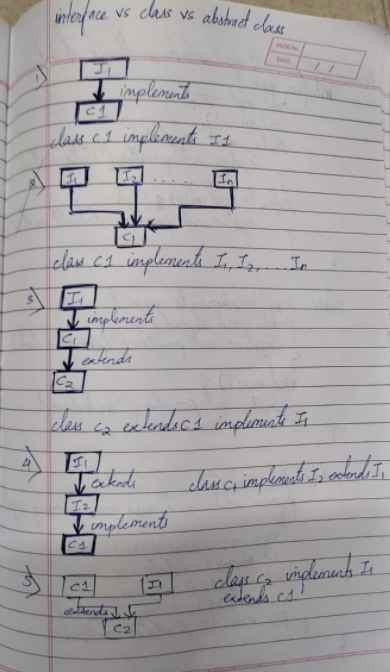 interface vs class vs abstract class
PAGE No.
DATE / /
1) I1
implements
C1
class C1 implements I1
2) I1 I2 ...... In
C1
class C1 implements I1, I2, .... In
3) I1
implements
C1
extends
C2
class C2 extends C1 implements I1
4) I1
extends class C1 implements I2 extends I1
I2
implements
C1
5) C1 I1 class C2 implements I1
extends extends C1
C2